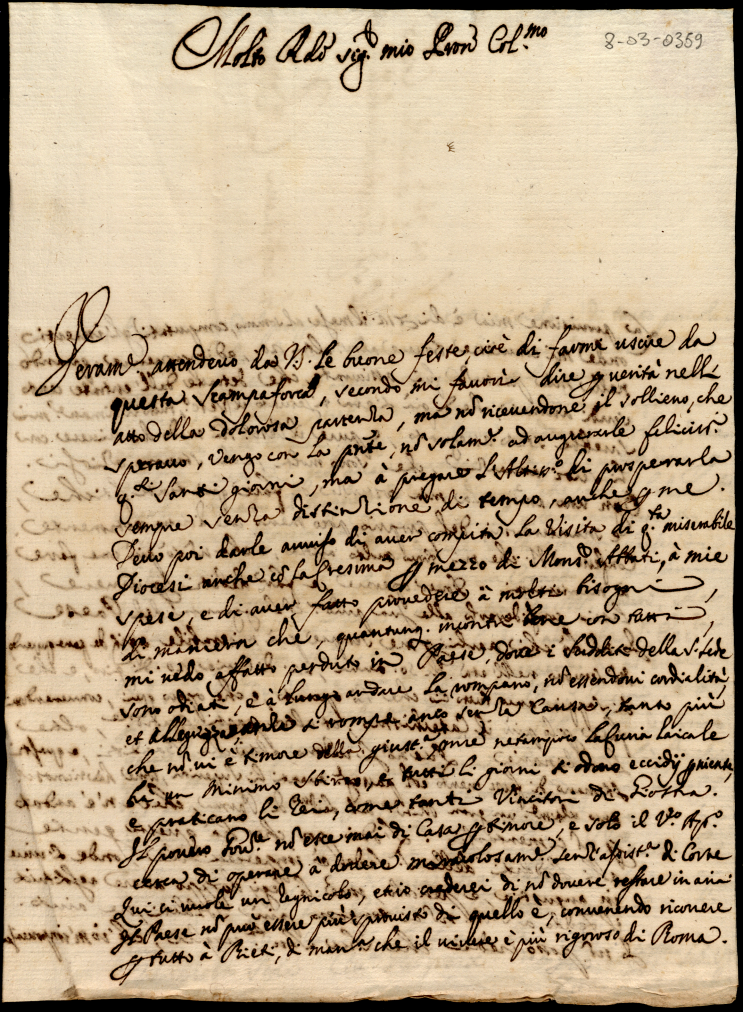 Molto Rdo sig.r mio Pron Col.mo
8-03-0359
Veram.e attendevo da VS. le buone feste, cioè di farmi uscire da
questa scampaforca, secondo mi favorì dire p verità nell'
atto della dolorosa partenza, ma nō ricevendone il sollievo, che
speravo, vengo con la pnte, nō solam.e ad augurarle feliciss.i
q.ti Santi giorni, ma à pregare l'Altiss.o di prosperarla
sempre senza distinzione di tempo, anche p me.
Devo poi darle avviso di aver compita la Visita di q.ta miserabile
Diocesi anche cō la Cresima p mezzo di Mons.r Abbati, à mie
spese, e di aver fatto provedere à molti bisogni,
di maniera che, quantunq. incontri bene con tutti,
mi vedo affatto perduto in Paese, dove i sudditi della S. Sede
sono odiati, e à lungo andare la rompano, nō essendovi cordialità,
et si rompe anco senza causa, tanto più
che nō vi è timore della giust.a come netampoco la Curia laicale
hà un minimo e tutti li giorni si odono eccidij privati,
e praticano li Rei, come tanti Vincitori di Giostra.
Il povero Gov.re nō esce mai di Casa p timore, e solo il V.o Ap.o
cerca di operare à dovere senz'assist.a di Corte
Qui ci vuole un Regnicolo, et io crederei di nō dovere restare in aria
Il Paese nō può essere più sprovisto di quello è, convenendo ricorrere
p tutto à Rieti, di man.a che il vivere è più rigoroso di Roma.